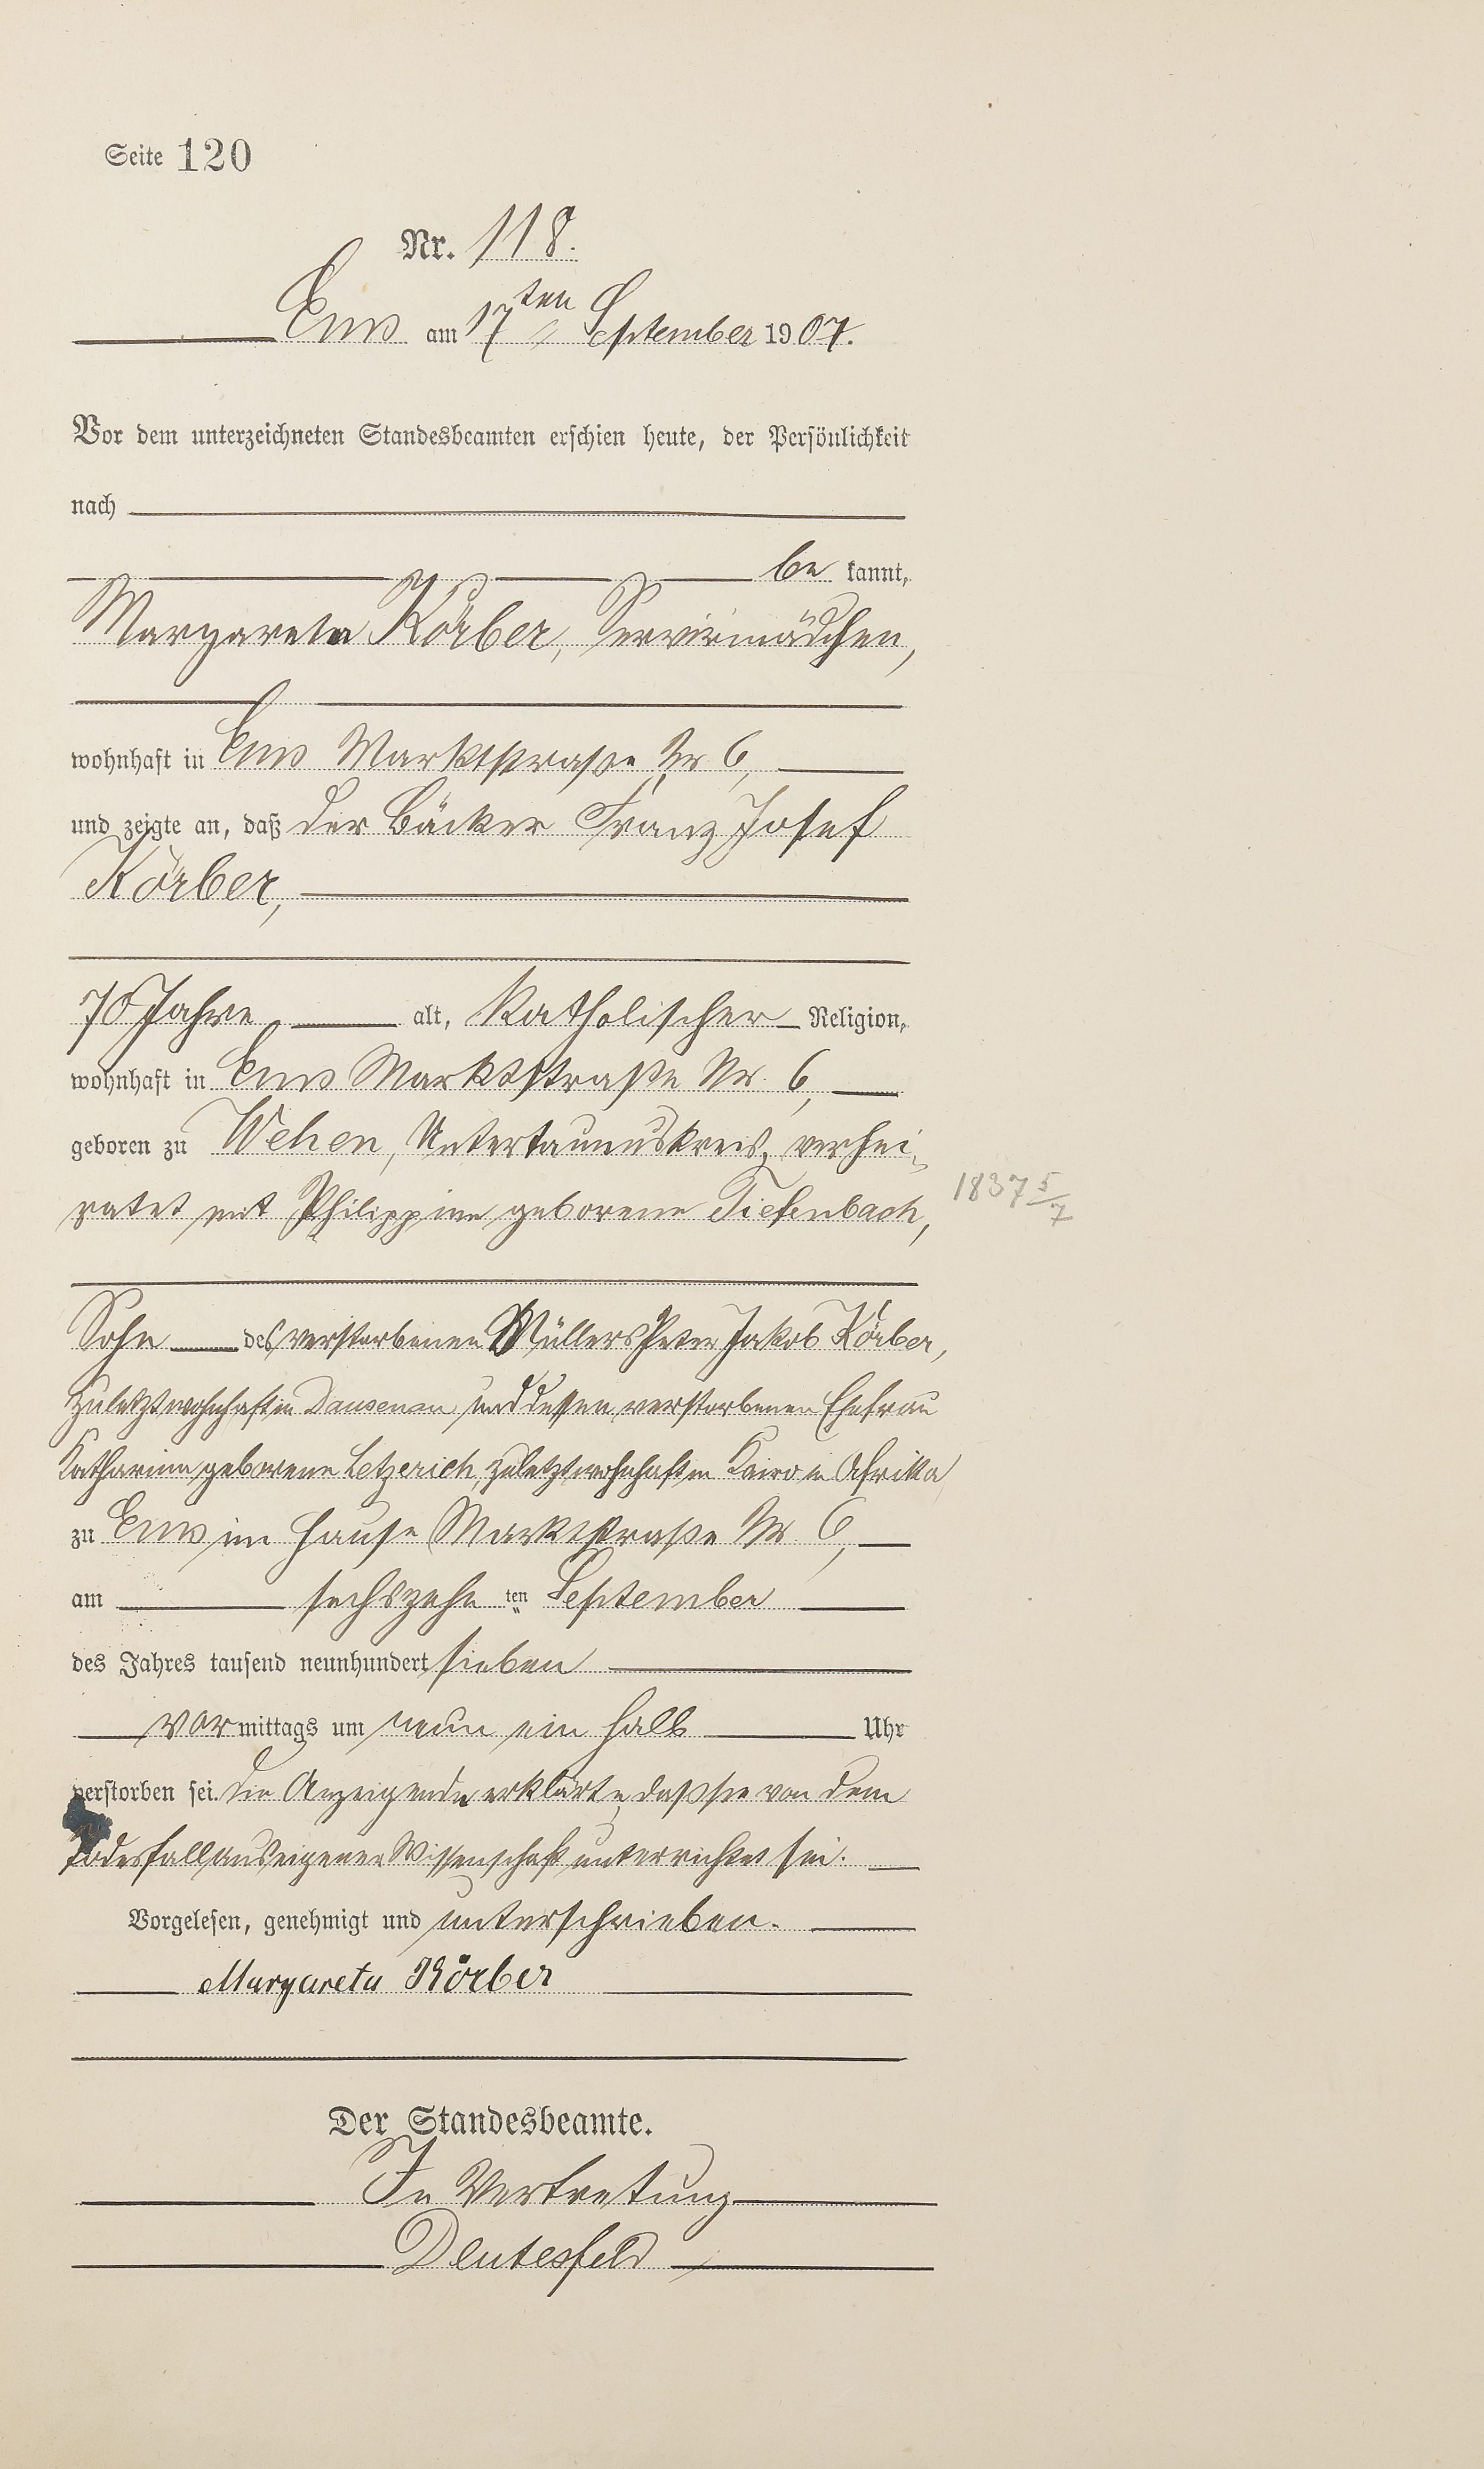 Seite 120
Nr. 118.
Ems am 17ten September 1907.
Vor dem unterzeichneten Standesbeamten erschien heute, der Persönlichkeit
nach
be kannt,
Margareta Körber, Servirmädchen,
wohnhaft in Ems Marktstraße Nr 6,
und zeigte an, daß der Bäcker Franz Josef
Körber,
70 Jahre alt, katholischer Religion,
wohnhaft in Ems Marktstraße Nr. 6,
geboren zu Wehen, Untertaunuskreis, verhei-
ratet mit Philippine geborene Tiefenbach,
1837 5/7
Sohn des verstorbenen Müllers Peter Jakob Körber,
zuletzt wohnhaft in Dausenau und dessen verstorbenen Ehefrau
Katharina geborene Letzerich, zuletzt wohnhaft in Kairo in Afrika
zu Ems im Hause Marktstraße Nr. 6,
am sechszehn ten September
des Jahres tausend neunhundert sieben
vor mittags um neun ein halb Uhr
verstorben sei. Die Anzeigende erklärte, daß sie von dem
Todesfall aus eigener Wissenschaft unterrichtet sei.
Vorgelesen, genehmigt und unterschrieben.
Margareta Körber
Der Standesbeamte.
In Vertretung
Deutesfeld